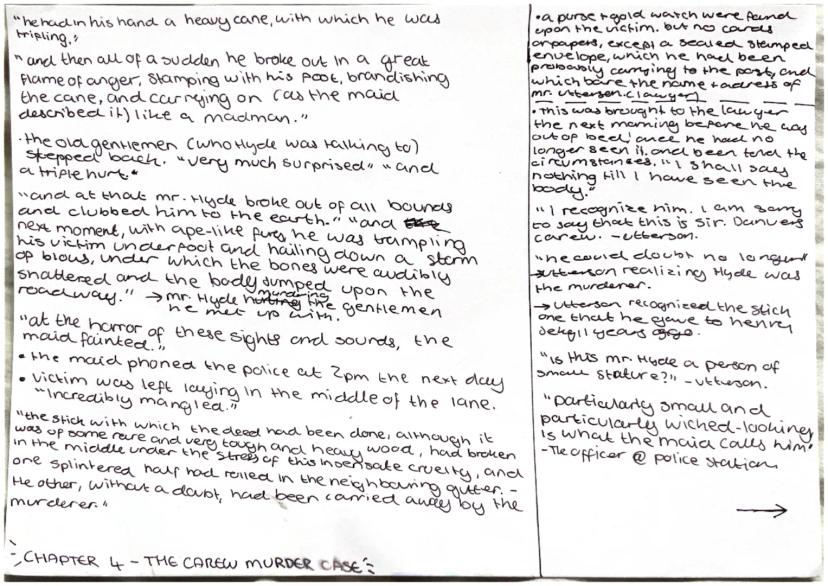 "he had in his hand a heavy cane, with which he was
tripling."
"and then all of a sudden he broke out in a great
flame of anger, stamping with his foot, brandishing
the cane, and carrying on (as the maid
described it) like a madman."
• the old gentlemen (who Hyde was talking to)
stepped back. "very much surprised" "and
a trifle hurt"
"and at that mr. Hyde broke out of all bounds
and clubbed him to the earth." "and
next moment, with ape-like fury he was trampling
his victim underfoot and hailing down a storm
of blows, under which the bones were audibly
shattered and the body jumped upon the
roadway." → mr. Hyde murdering the gentlemen
he met up with.
"at the horror of these sights and sounds, the
maid fainted."
• the maid phoned the police at 2pm the next day
• victim was left laying in the middle of the lane.
"Incredibly mangled."
"the stick with which the deed had been done, although it
was of some rare and very tough and heavy wood, had broken
in the middle under the stress of this insensate cruelty, and
one splintered half had rolled in the neighbouring gutter. –
the other, without a doubt, had been carried away by the
murderer."
CHAPTER 4 – THE CAREW MURDER CASE
• a purse + gold watch were found
upon the victim. but no cards
or papers, except a sealed stamped
envelope, which he had been
probably carrying to the post, and
which bore the name + adress of
mr. Utterson. (lawyer)
• This was brought to the lawyer
the next morning before he was
out of bed; once he had no
longer seen it, and been told the
circumstances. "I shall say
nothing till I have seen the
body."
"I recognize him. I am sorry
to say that this is Sir. Danvers
Carew. – Utterson.
"he could doubt no longer"
→ Utterson realizing Hyde was
the murderer.
→ Utterson recognized the stick
one that he gave to henry
Jekyll years ago.
"Is this mr. Hyde a person of
small stature?" – Utterson.
"Particularly small and
particularly wicked-looking,
is what the maid calls him"
– The officer @ police station
→